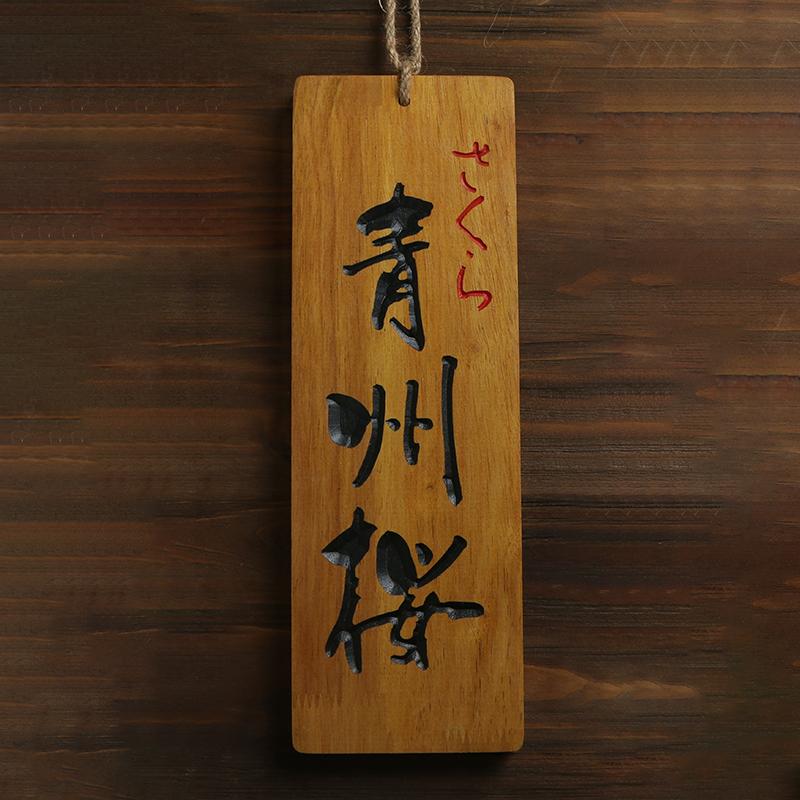 さくら
青州桜